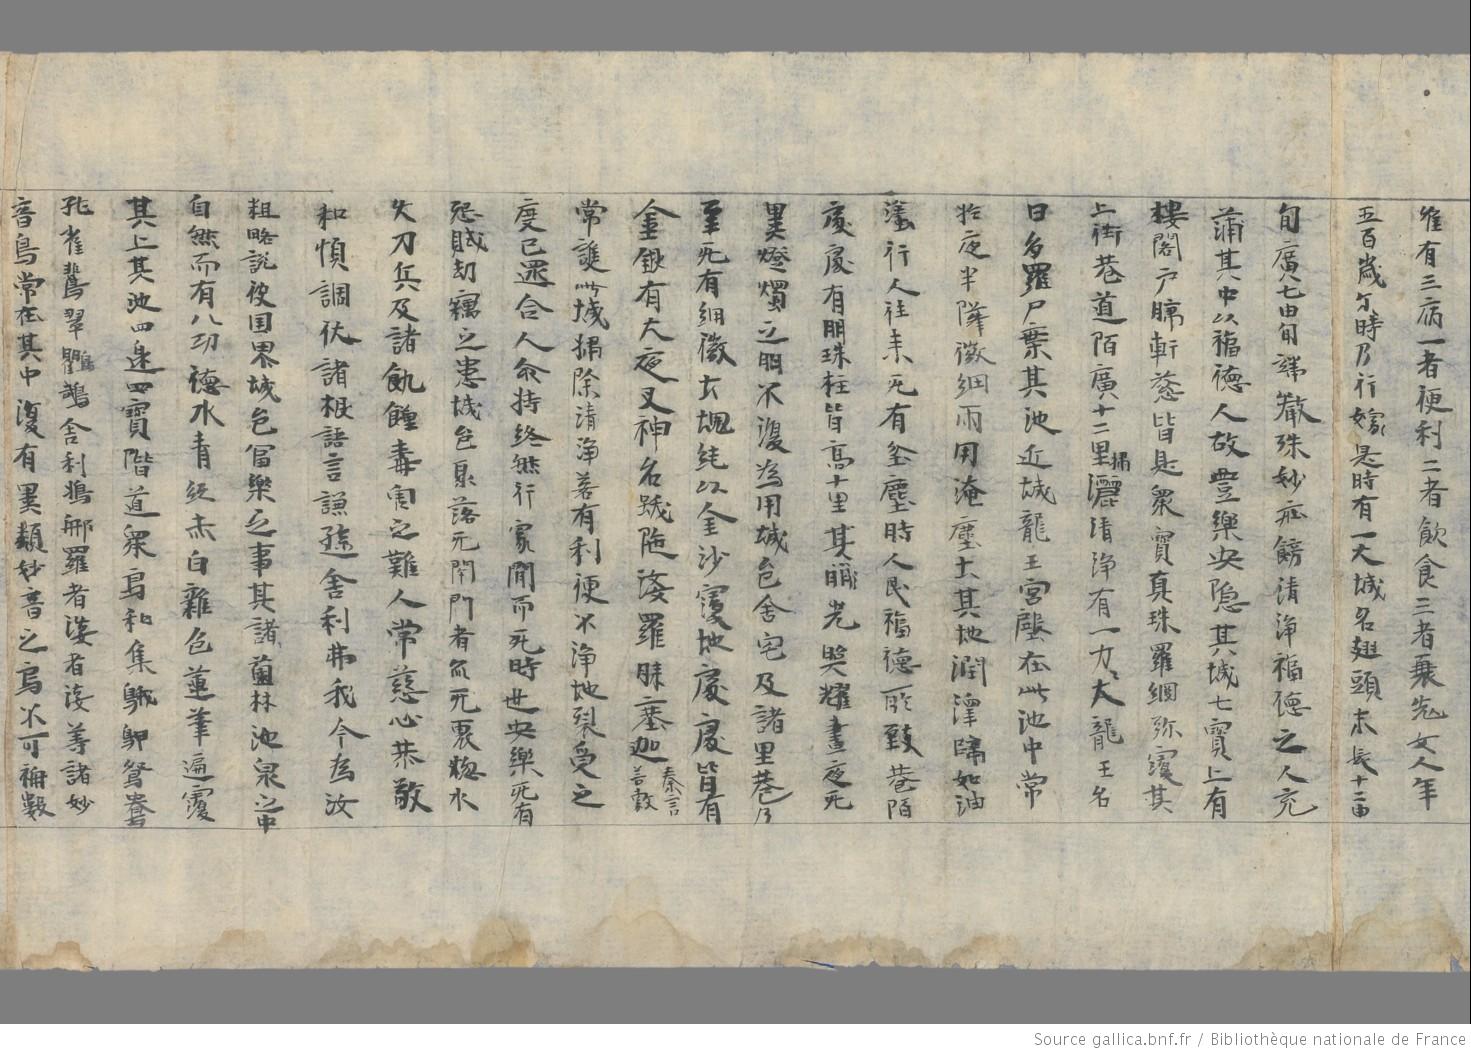 唯有三病一者便利二者飲食三者衰老女人年
五百歲尒時乃行嫁是時有一大城名翅頭末長十二由
旬廣七由旬端嚴殊妙疘餝清淨福德之人充
滿其中以福德人故豐樂安隐其城七寶上有
樓閣戸牖軒䓗皆是衆寶真珠羅網弥覆其
上街巷道陌廣十二里掃灑清淨有一力大龍王名
曰多羅尸棄其池近城龍王宮殿在此池中常
扵夜半降微細雨用淹塵土其地潤澤歸如油
塗行人往来无有坌塵時人民福德所致巷陌
處處有明珠柱皆高十里其明光照耀晝夜无
異燈燭之明不復為用城邑舍宅及諸里巷乃
至无有細微土塊純以金沙覆地處處皆有
金銀有大夜叉神名䟦陁婆羅賖塞迦秦言善教
常護此城掃除清淨若有利便不淨地裂受之
受已還合人命将終然行冢間而死時世安樂无有
怨賊刼竊之患城邑聚落无閇門者亦无衰惱水
火刀兵及諸飢饉毒害之難人常慈心恭敬
和愼調伏諸根語言謙遜舍利弗我今為汝
粗略說彼国界城邑冨樂之事其諸薗林池泉之中
自然而有八功德水青紅赤白雜色蓮華遍覆
其上其池四邊四寶階道衆鳥和集鵝鴨鴛鴦
孔雀翡翠鸚鵡舍利鳩那羅耆婆耆婆等諸妙
音鳥常在其中復有異類妙音之鳥不可稱數